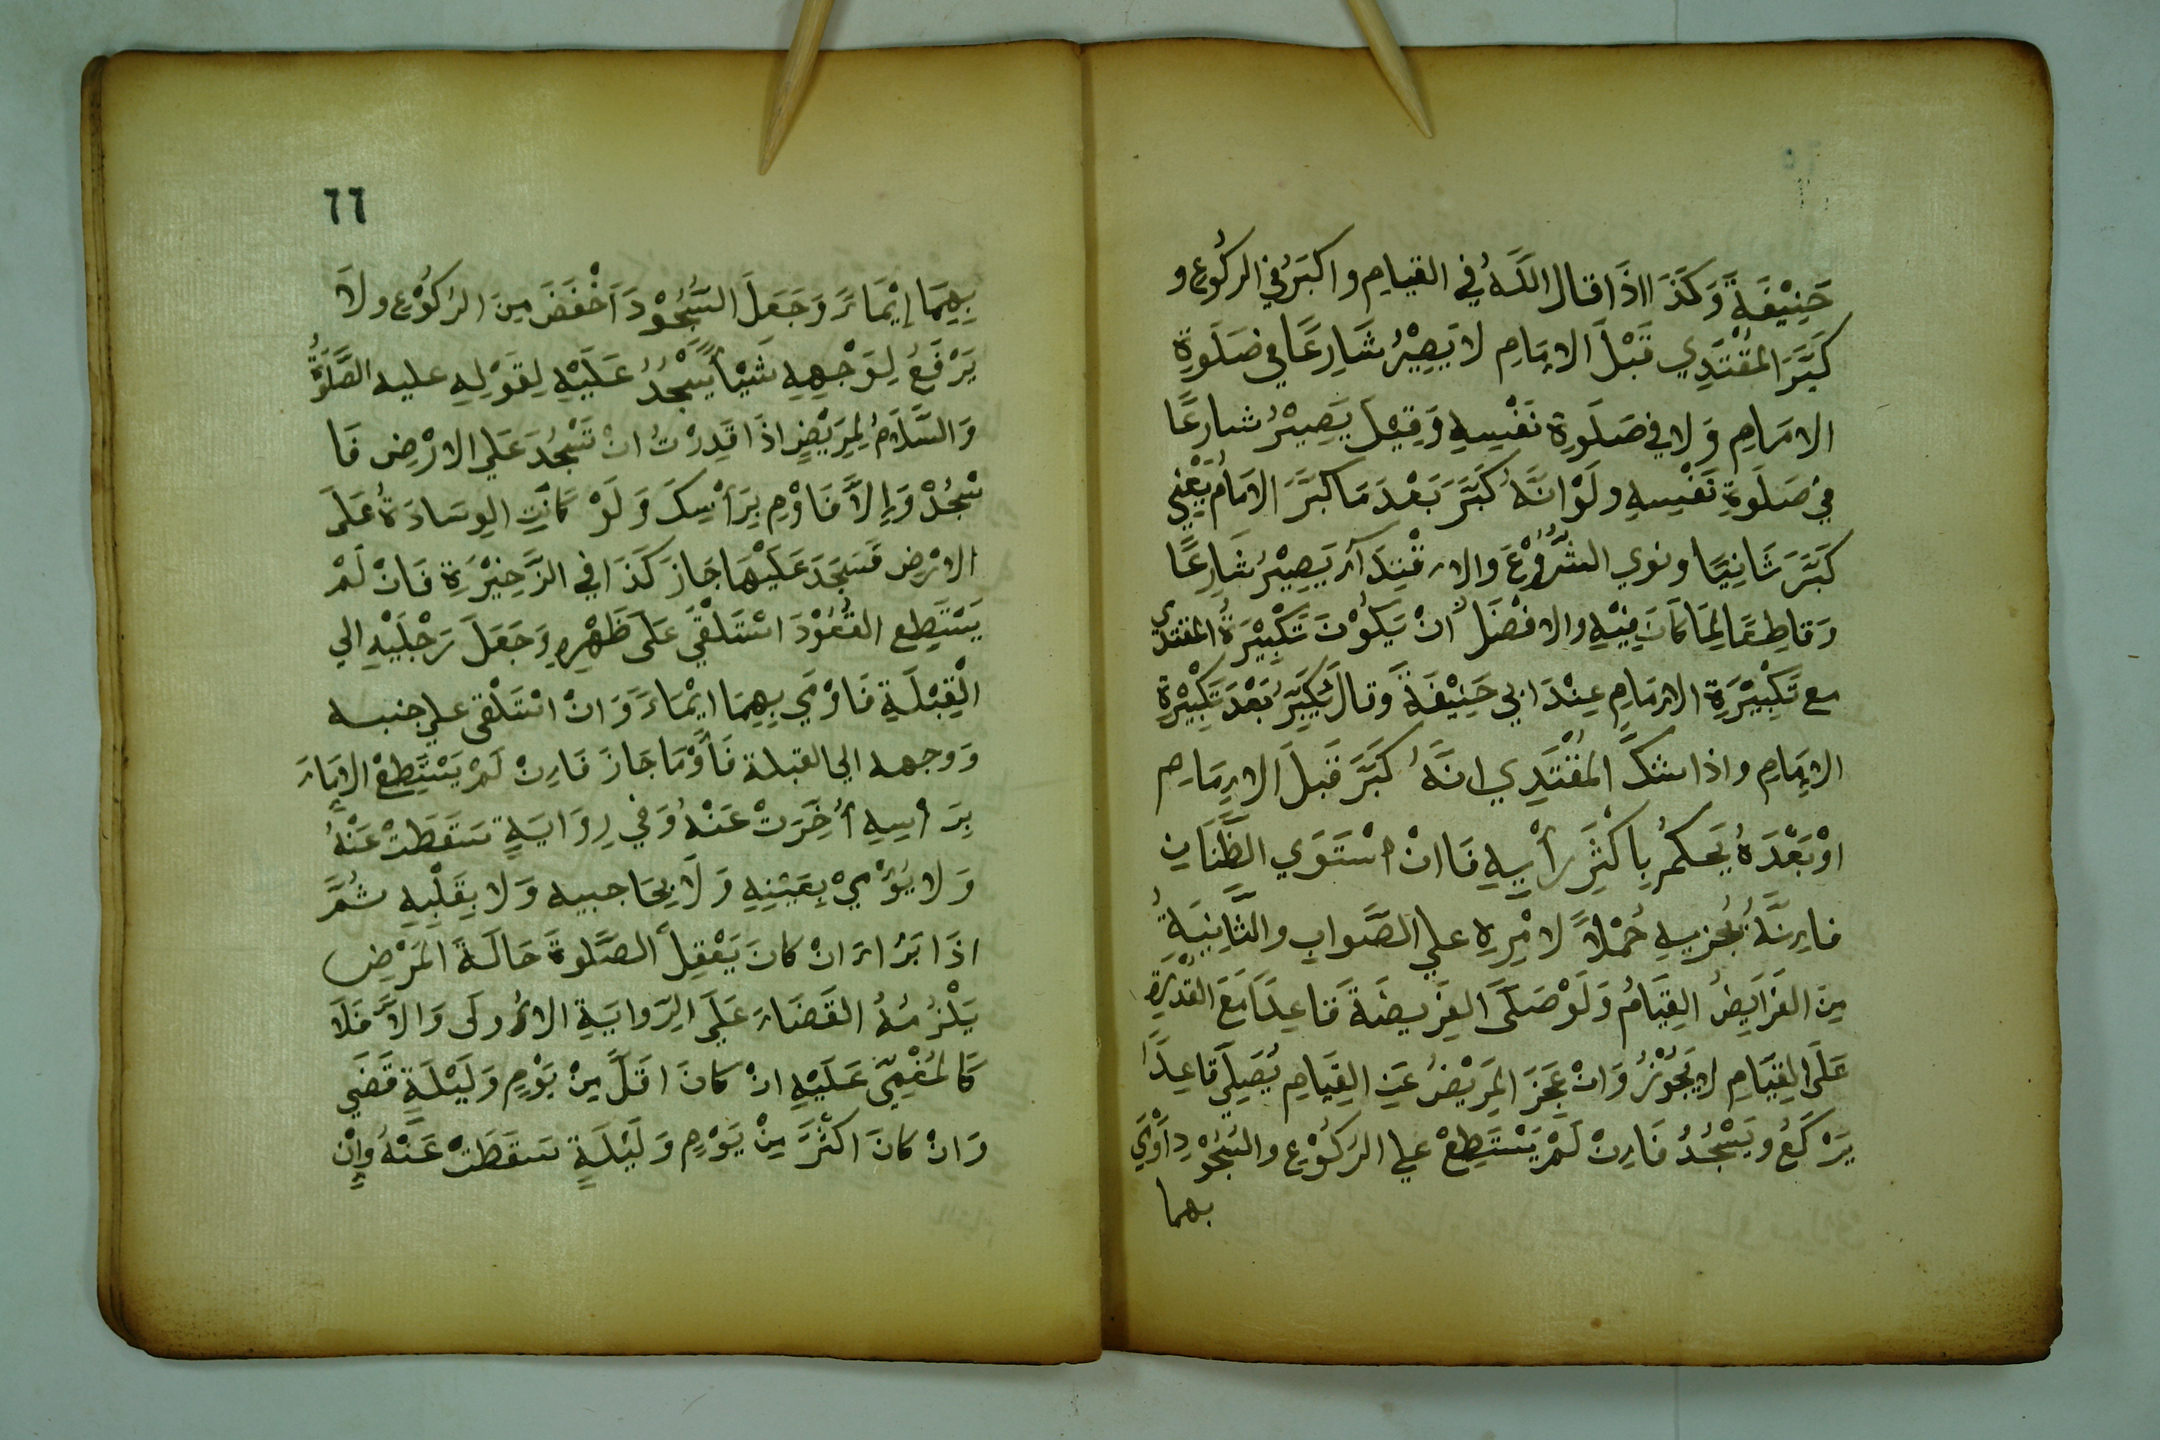 حَنِيْفَةَ وَكَذَا اذَا قال اللهُ في القيامِ واكبَرُ في الركُوعِ و
كَبَّرَ المقْتَدِي قَبْلَ الامَامِ لا يَصِيْرُ شَارِعًا في صَلَوةِ
الامَامِ وَلا في صَلَوةِ نَفْسِهِ وَقِيْلَ يَصِيْرُ شارِعًا
في صَلَوةِ نَفْسِهِ ولَوْ انَّهُ كَبَّرَ بَعْدَ مَا كَبَّرَ الامَامُ يَعْنِي
كَبَّرَ ثَانِيًا ونوي الشُّرُوْعَ والاِقْتِدَآءَ يَصِيْرُ شَارِعًا
وَقاطِعًا لِمَا كَانَ فِيْهِ والافْضَلُ انْ يَكُوْنَ تَكْبِيْرَةُ المقتدي
مع تَكْبِيْرَةِ الاِمَامِ عِنْدَ ابي حَنِيْفَةَ وَقالَ يُكَبِّرُ بَعْدَ تَكْبِيْرَةِ
الاِمَامِ واذا شكَّ المُقْتَدِي انَّهُ كَبَّرَ قَبلَ الاِمَامِ
اوْ بَعْدَهُ يَحكمُ بِاكْثَرِ رأْيِهِ فَاانْ اسْتَوَي الظَّنَانِ
فاِنَّهُ يُجزيهِ حُمْلاً لامْرِهِ علي الصَّوابِ والثَّانِيَةُ
مِنَ الفَرَايِضِ القِيَامُ وَلَوْ صَلَّى الفَرِيضَةَ قَاعِدًا مَعَ القُدْرَةِ
عَلَى القِيَامِ لايَجُوْزُ وَانْ عَجَزَ المَرِيْضُ عَنِ القِيَامِ يُصَلِّي قاعِدًا
يَرْكَعُ ويَسْجُدُ فَاِنْ لَمْ يَسْتَطِعْ علي الرَكُوْعِ والسُجُوْدِ اَوْمَي
بهما
٦٦
بِهِمَا إِيْمَاءً وَجَعَلَ السُّجُوْدَ اَخْفَضَ مِنَ الرُكُوْعِ ولاَ
يَرْفَعُ لِوَجْهِهِ شَيْأً يَسْجُدُ عَلَيْهِ لِقَوْلِهِ عليه الصَّلَوةُ
وَالسَّلاَمُ لِمَرِيْضٍ اذَا قَدِرْتَ انْ تَسْجُدَ عَلَي الارْضِ فَا
سْجُدْ وَاِلاَّ فَاوْمِ بِرَأْسِكَ وَلَوْ كَانَتِ الوِسَادَةُ عَلَى
الارْضِ فَسَجَدَ عَلَيْهَا جَازَ كَذَا في الذَّخِيْرَةِ فَانْ لَمْ
يَسْتَطِعِ القُعُوْدَ اسْتَلْقَي عَلَى ظَهْرِهِ وَجَعَلَ رَجْلَيْهِ الي
الْقِبْلَةِ فَاوْمَي بِهِمَا ايْمَاءً وَانْ اسْتَلْقى علي جنبه
وَوجهه الي القبلة فَأَوْمَا جَازَ فَاِنْ لَمْ يَسْتَطِعْ الاِيْمَاءَ
بِرَأْسِهِ أُخِّرَتْ عَنْهُ وَفي رِوَايَةٍ سَقَطَتْ عَنْهُ
وَلا يُوْمِيْ بِعَيْنِهِ وَلَا بِحَاجبيه وَلا بِقَلْبِهِ ثُمَّ
اذَا بَرُاءَ انْ كانَ يَعْقِلُ الصَّلوةَ حَالَةَ المَرَضِ
يَلْزَمُهُ القَضَاءَ عَلَى الرِوايَةِ الاُوْلَى وَالاَّ فَلَا
كَالمُغْمِيّ عَلَيْهِ انْ كَانَ اقَلَّ مِنْ يَوْمٍ وَلَيْلَةٍ قَضَي
وَانْ كَانَ اكْثَرَ مِنْ يَوْمٍ وَلَيْلَةٍ سَقَطَتْ عَنْهُ وَاِنْ